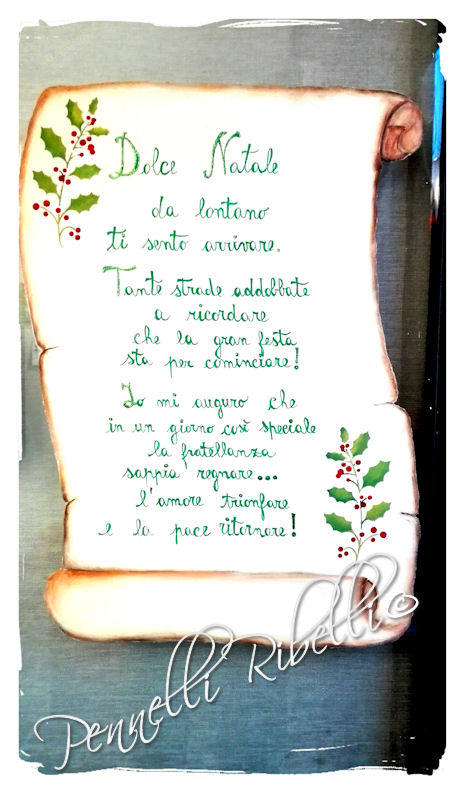 Dolce Natale
da lontano
ti sento arrivare.
Tante strade addobbate
a ricordare
che la gran festa
sta per cominciare!
Io mi auguro che
in un giorno così speciale
la fratellanza
sappia regnare...
l'amore trionfare
e la pace ritornare!
Pennelli Ribelli©